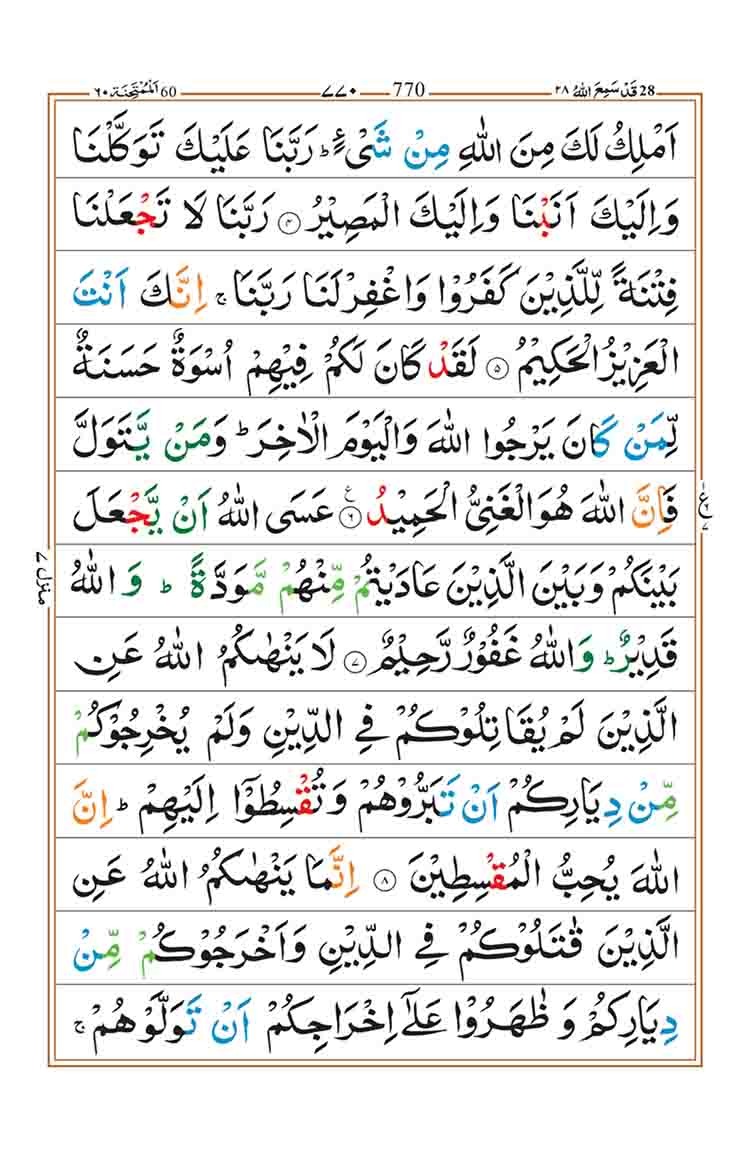 28 قَدْ سَمِعَ اللّٰهُ ٢٨ 770 ٧٧٠ 60 اَلْمُمْتَحِنَة ٦٠
اَمْلِكُ لَكَ مِنَ اللّٰهِ مِنْ شَیْءٍ ؕ رَبَّنَا عَلَيْكَ تَوَكَّلْنَا
وَاِلَيْكَ اَنَبْنَا وَاِلَيْكَ الْمَصِيْرُ ۝۴ رَبَّنَا لَا تَجْعَلْنَا
فِتْنَةً لِّلَّذِيْنَ كَفَرُوْا وَاغْفِرْ لَنَا رَبَّنَا ۚ اِنَّكَ اَنْتَ
الْعَزِيْزُ الْحَكِيْمُ ۝۵ لَقَدْ كَانَ لَكُمْ فِيْهِمْ اُسْوَةٌ حَسَنَةٌ
لِّمَنْ كَانَ يَرْجُوا اللّٰهَ وَالْيَوْمَ الْاٰخِرَ ؕ وَمَنْ يَّتَوَلَّ
فَاِنَّ اللّٰهَ هُوَ الْغَنِیُّ الْحَمِيْدُ ۝۶ ع عَسَى اللّٰهُ اَنْ يَّجْعَلَ
بَيْنَكُمْ وَبَيْنَ الَّذِيْنَ عَادَيْتُمْ مِّنْهُمْ مَّوَدَّةً ؕ وَاللّٰهُ
قَدِيْرٌ ؕ وَاللّٰهُ غَفُوْرٌ رَّحِيْمٌ ۝۷ لَا يَنْهٰىكُمُ اللّٰهُ عَنِ
الَّذِيْنَ لَمْ يُقَاتِلُوْكُمْ فِی الدِّيْنِ وَلَمْ يُخْرِجُوْكُمْ
مِّنْ دِيَارِكُمْ اَنْ تَبَرُّوْهُمْ وَتُقْسِطُوْۤا اِلَيْهِمْ ؕ اِنَّ
اللّٰهَ يُحِبُّ الْمُقْسِطِيْنَ ۝۸ اِنَّمَا يَنْهٰىكُمُ اللّٰهُ عَنِ
الَّذِيْنَ قٰتَلُوْكُمْ فِی الدِّيْنِ وَاَخْرَجُوْكُمْ مِّنْ
دِيَارِكُمْ وَ ظٰهَرُوْا عَلٰۤى اِخْرَاجِكُمْ اَنْ تَوَلَّوْهُمْ ۚ
منزل ٧